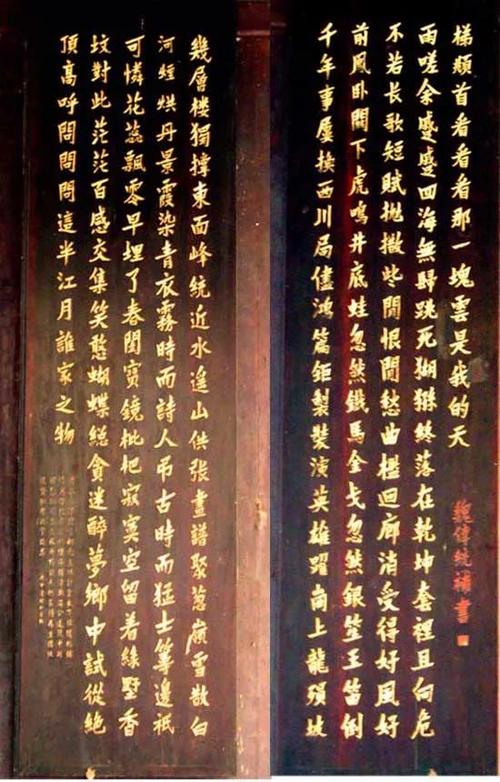 幾層楼獨撑東面峰統近水遥山供張畫譜聚葱嶺雪散白
河烟烘丹景霞染青衣霧時而詩人弔古時而猛士籌邊祇
可憐花蕊飄零早埋了春閨寳鏡枇杷寂寞空留着緑墅香
坟對此茫茫百感交集笑憨蝴蝶緫貪迷醉夢鄉中試從絶
頂高呼問問問這半江月誰家之物
千年事屢換西川局儘鴻篇鉅製裝演英雄躍崗上龍殞坡
前鳳卧關下虎鳴井底蛙忽然鐵馬金戈忽然銀笙玉笛倒
不若长歌短賦抛撒些閒恨閒愁曲檻迴廊消受得好風好
雨嗟余蹙蹙四海無歸跳死猢猻終落在乾坤套裡且向危
梯頫首看看看那一塊雲是我的天
魏傳統補書